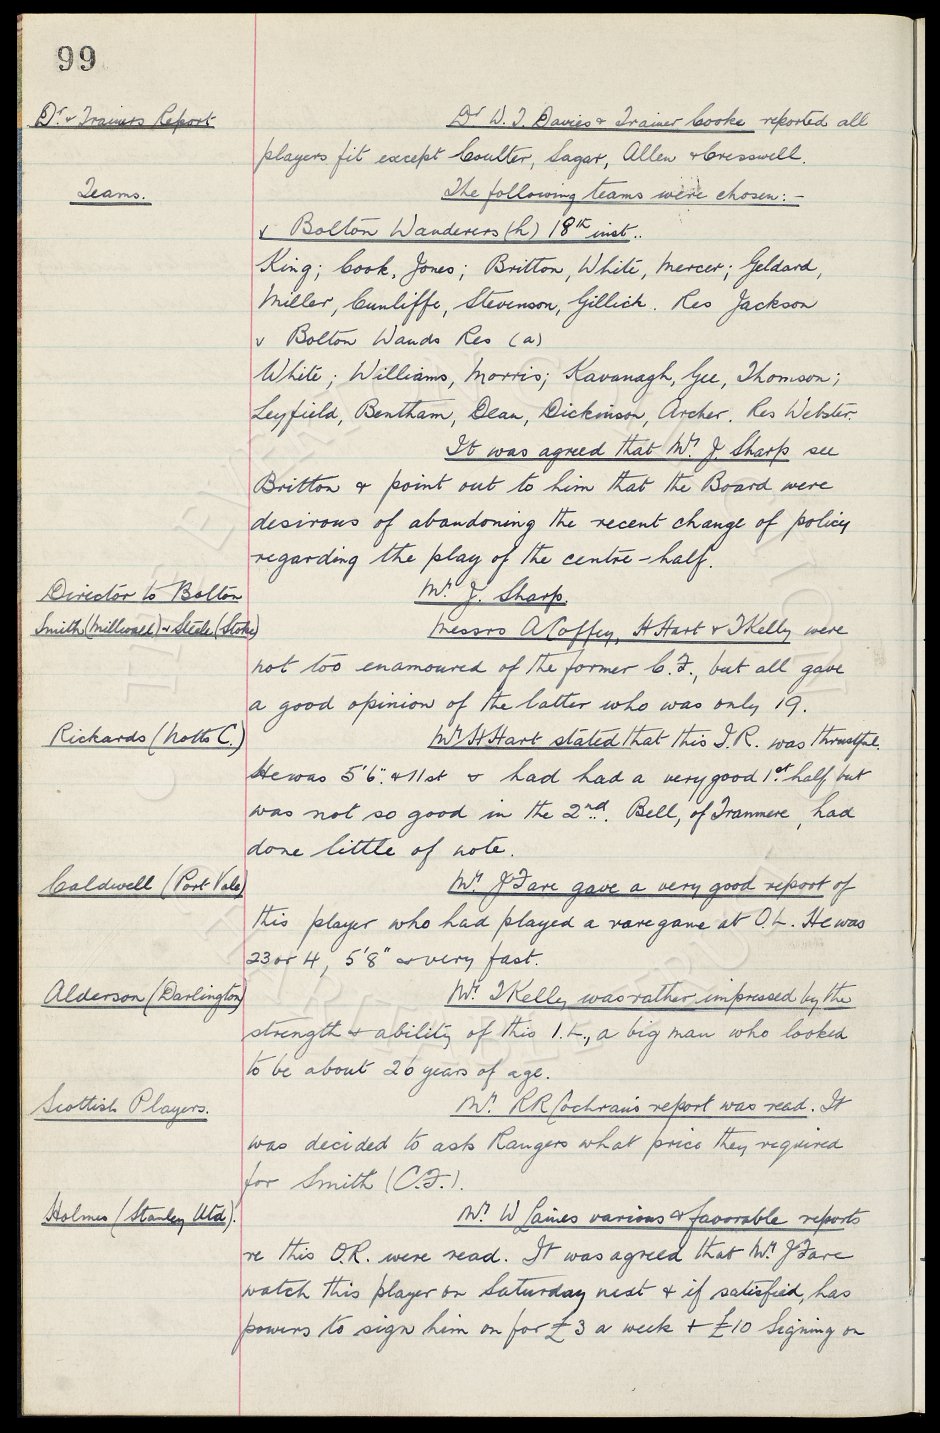 99
Dr. & Trainers Report
Dr W. J. Davies & Trainer Cooke reported all
players fit except Coulter, Sagar, Allen & Cresswell.
Teams.
The following teams were chosen:-
v Bolton Wanderers (h) 18th inst..
King; Cook, Jones; Britton, White, Mercer; Geldard,
Miller, Cunliffe, Stevenson, Gillick. Res Jackson
v Bolton Wands Res (a)
White; Williams, Morris; Kavanagh, Gee, Thomson;
Leyfield, Bentham, Dean, Dickinson, Archer. Res Webster.
It was agreed that Mr. J. Sharp see
Britton & point out to him that the Board were
desirous of abandoning the recent change of policy
regarding the play of the centre-half.
Director to Bolton
Mr. J. Sharp.
Smith (Millwall) & Steele (Stoke)
Messrs A Coffey, H Hart & T Kelly were
not too enamoured of the former C.F., but all gave
a good opinion of the latter who was only 19.
Rickards (Notts C.)
Mr. H Hart stated that this I.R. was thrustful.
He was 5'6". & 11st & had had a very good 1st half but
was not so good in the 2nd. Bell, of Tranmere, had
done little of note.
Caldwell (Port Vale)
Mr. J Fare gave a very good report of
this player who had played a rare game at O.L. He was
23 or 4, 5'8" & very fast.
Alderson (Darlington)
Mr. T Kelly was rather impressed by the
strength & ability of this I.L., a big man who looked
to be about 26 years of age.
Scottish Players.
Mr. R R Cochran's report was read. It
was decided to ask Rangers what price they required
for Smith (C.F.).
Holmes (Stanley Utd).
Mr. W Laines various & favorable reports
re this O.R. were read. It was agreed that Mr. J Fare
watch this player on Saturday next & if satisfied, has
powers to sign him on for £3 a week & £10 Signing on